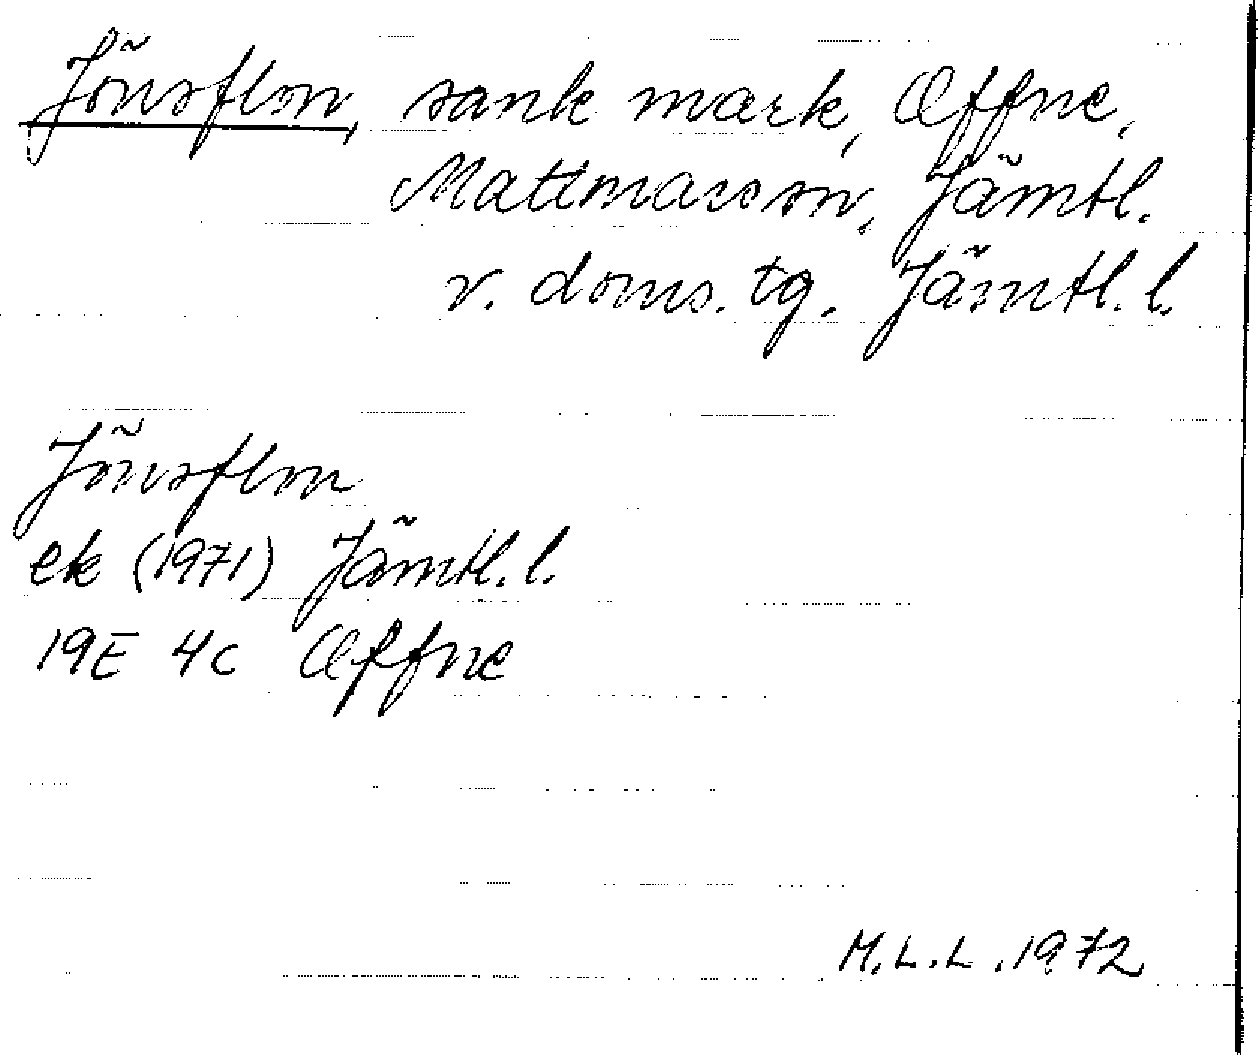 Jönsflon, sank mark, Offne,
Mattmarson, Jämtl.
v. doms. tg. Jämtl. l.
Jönsflon
ek (1971) Jämtl. l.
19E 4c Offne
M.L.L. 1972